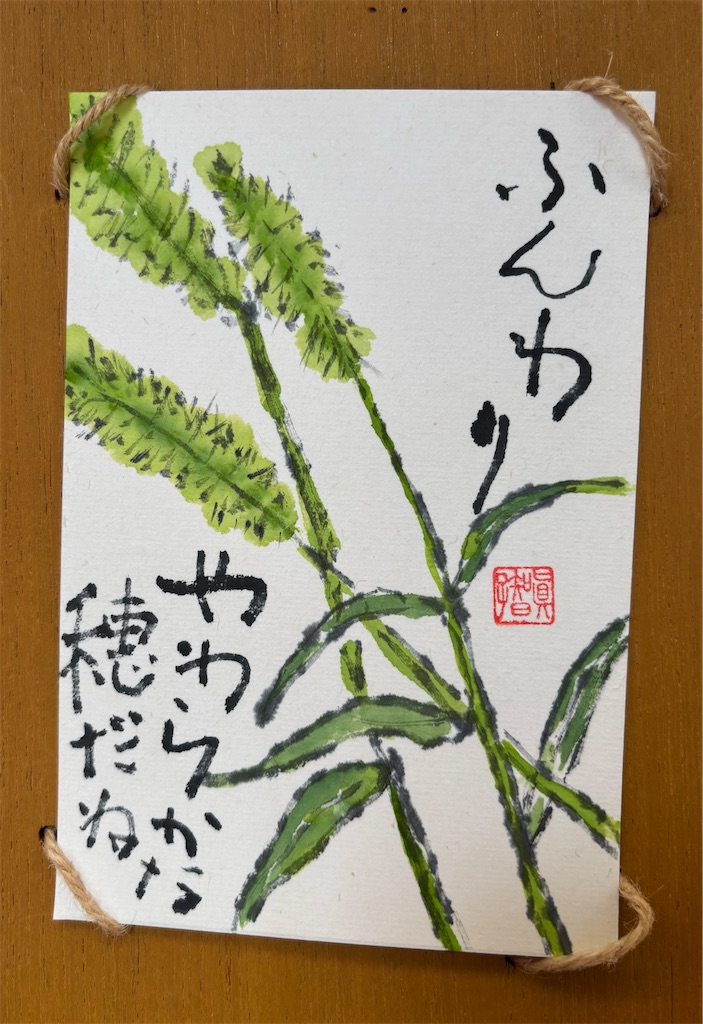 ふんわり
やわらかな
穂だね